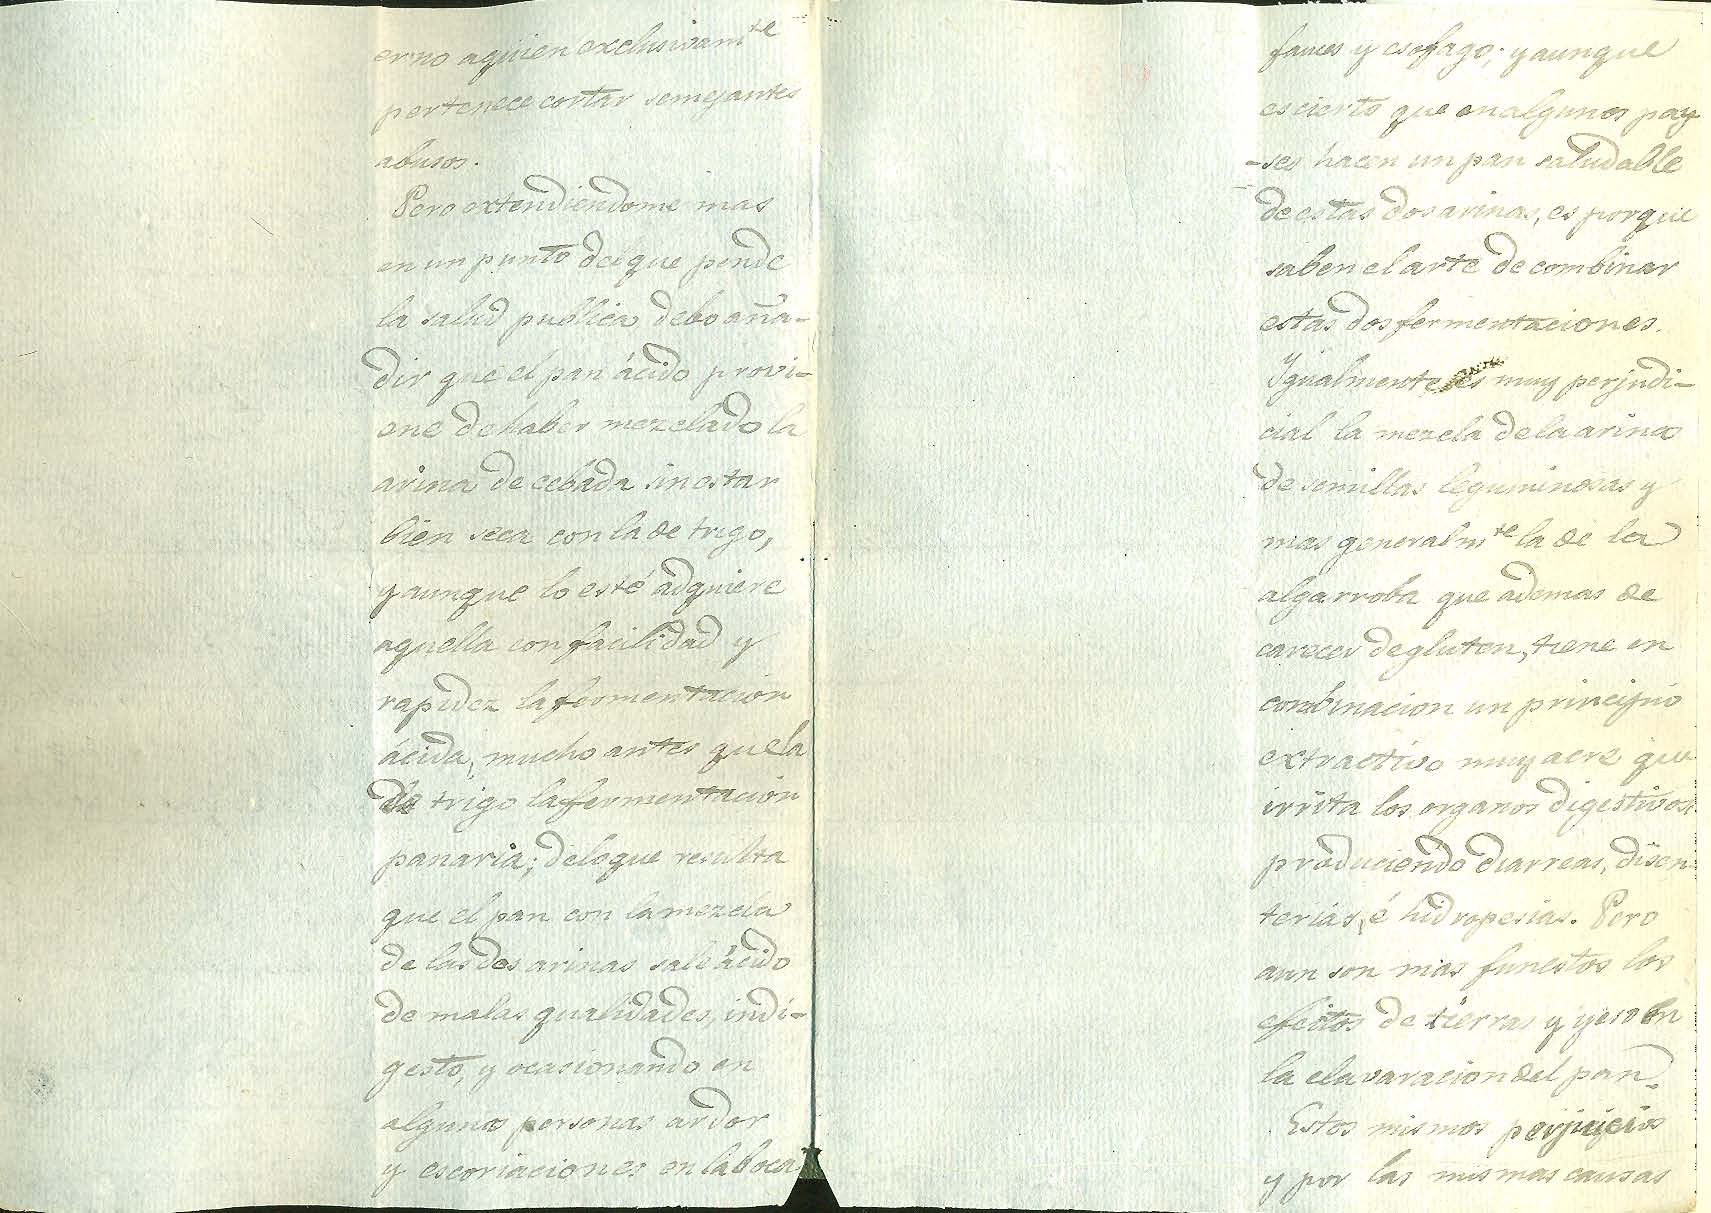 erno aquien exclusivam.te
pertenece cortar semejantes
abusos.
Pero extendiendome mas
en un punto del que pende
la salud publica debo aña-
dir que el pan ácido provi-
ene de haber mezclado la
arina de cebada sin estar
bien seca con la de trigo,
y aunque lo esté adquiere
aquella con facilidad y
rapidez la fermentacion
ácida, mucho antes que la
de trigo la fermentacion
panaria; de lo que resulta
que el pan con la mezcla
de las dos arinas sale ácido
de malas qualidades, indi-
gesto, y ocasionando en
algunas personas ardor
y escoriaciones en la boca
fauces y esofago; y aunque
es cierto que en algunos pay-
-ses hacen un pan saludable
de estas dos arinas, es porque
saben el arte de combinar
estas dos fermentaciones.
Igualmente es muy perjudi-
cial la mezcla de la arina
de semillas leguminosas y
mas generalm.te la de la
algarroba que ademas de
carecer de gluten, tiene en
combinacion un principio
extractivo muy acre que
irrita los organos digestivos
produciendo diarreas, disen
terias, é hidropesias. Pero
aun son mas funestos los
efectos de tierras y yeso en
la elavaracion del pan.
Estos mismos perjuicios
y por las mismas causas